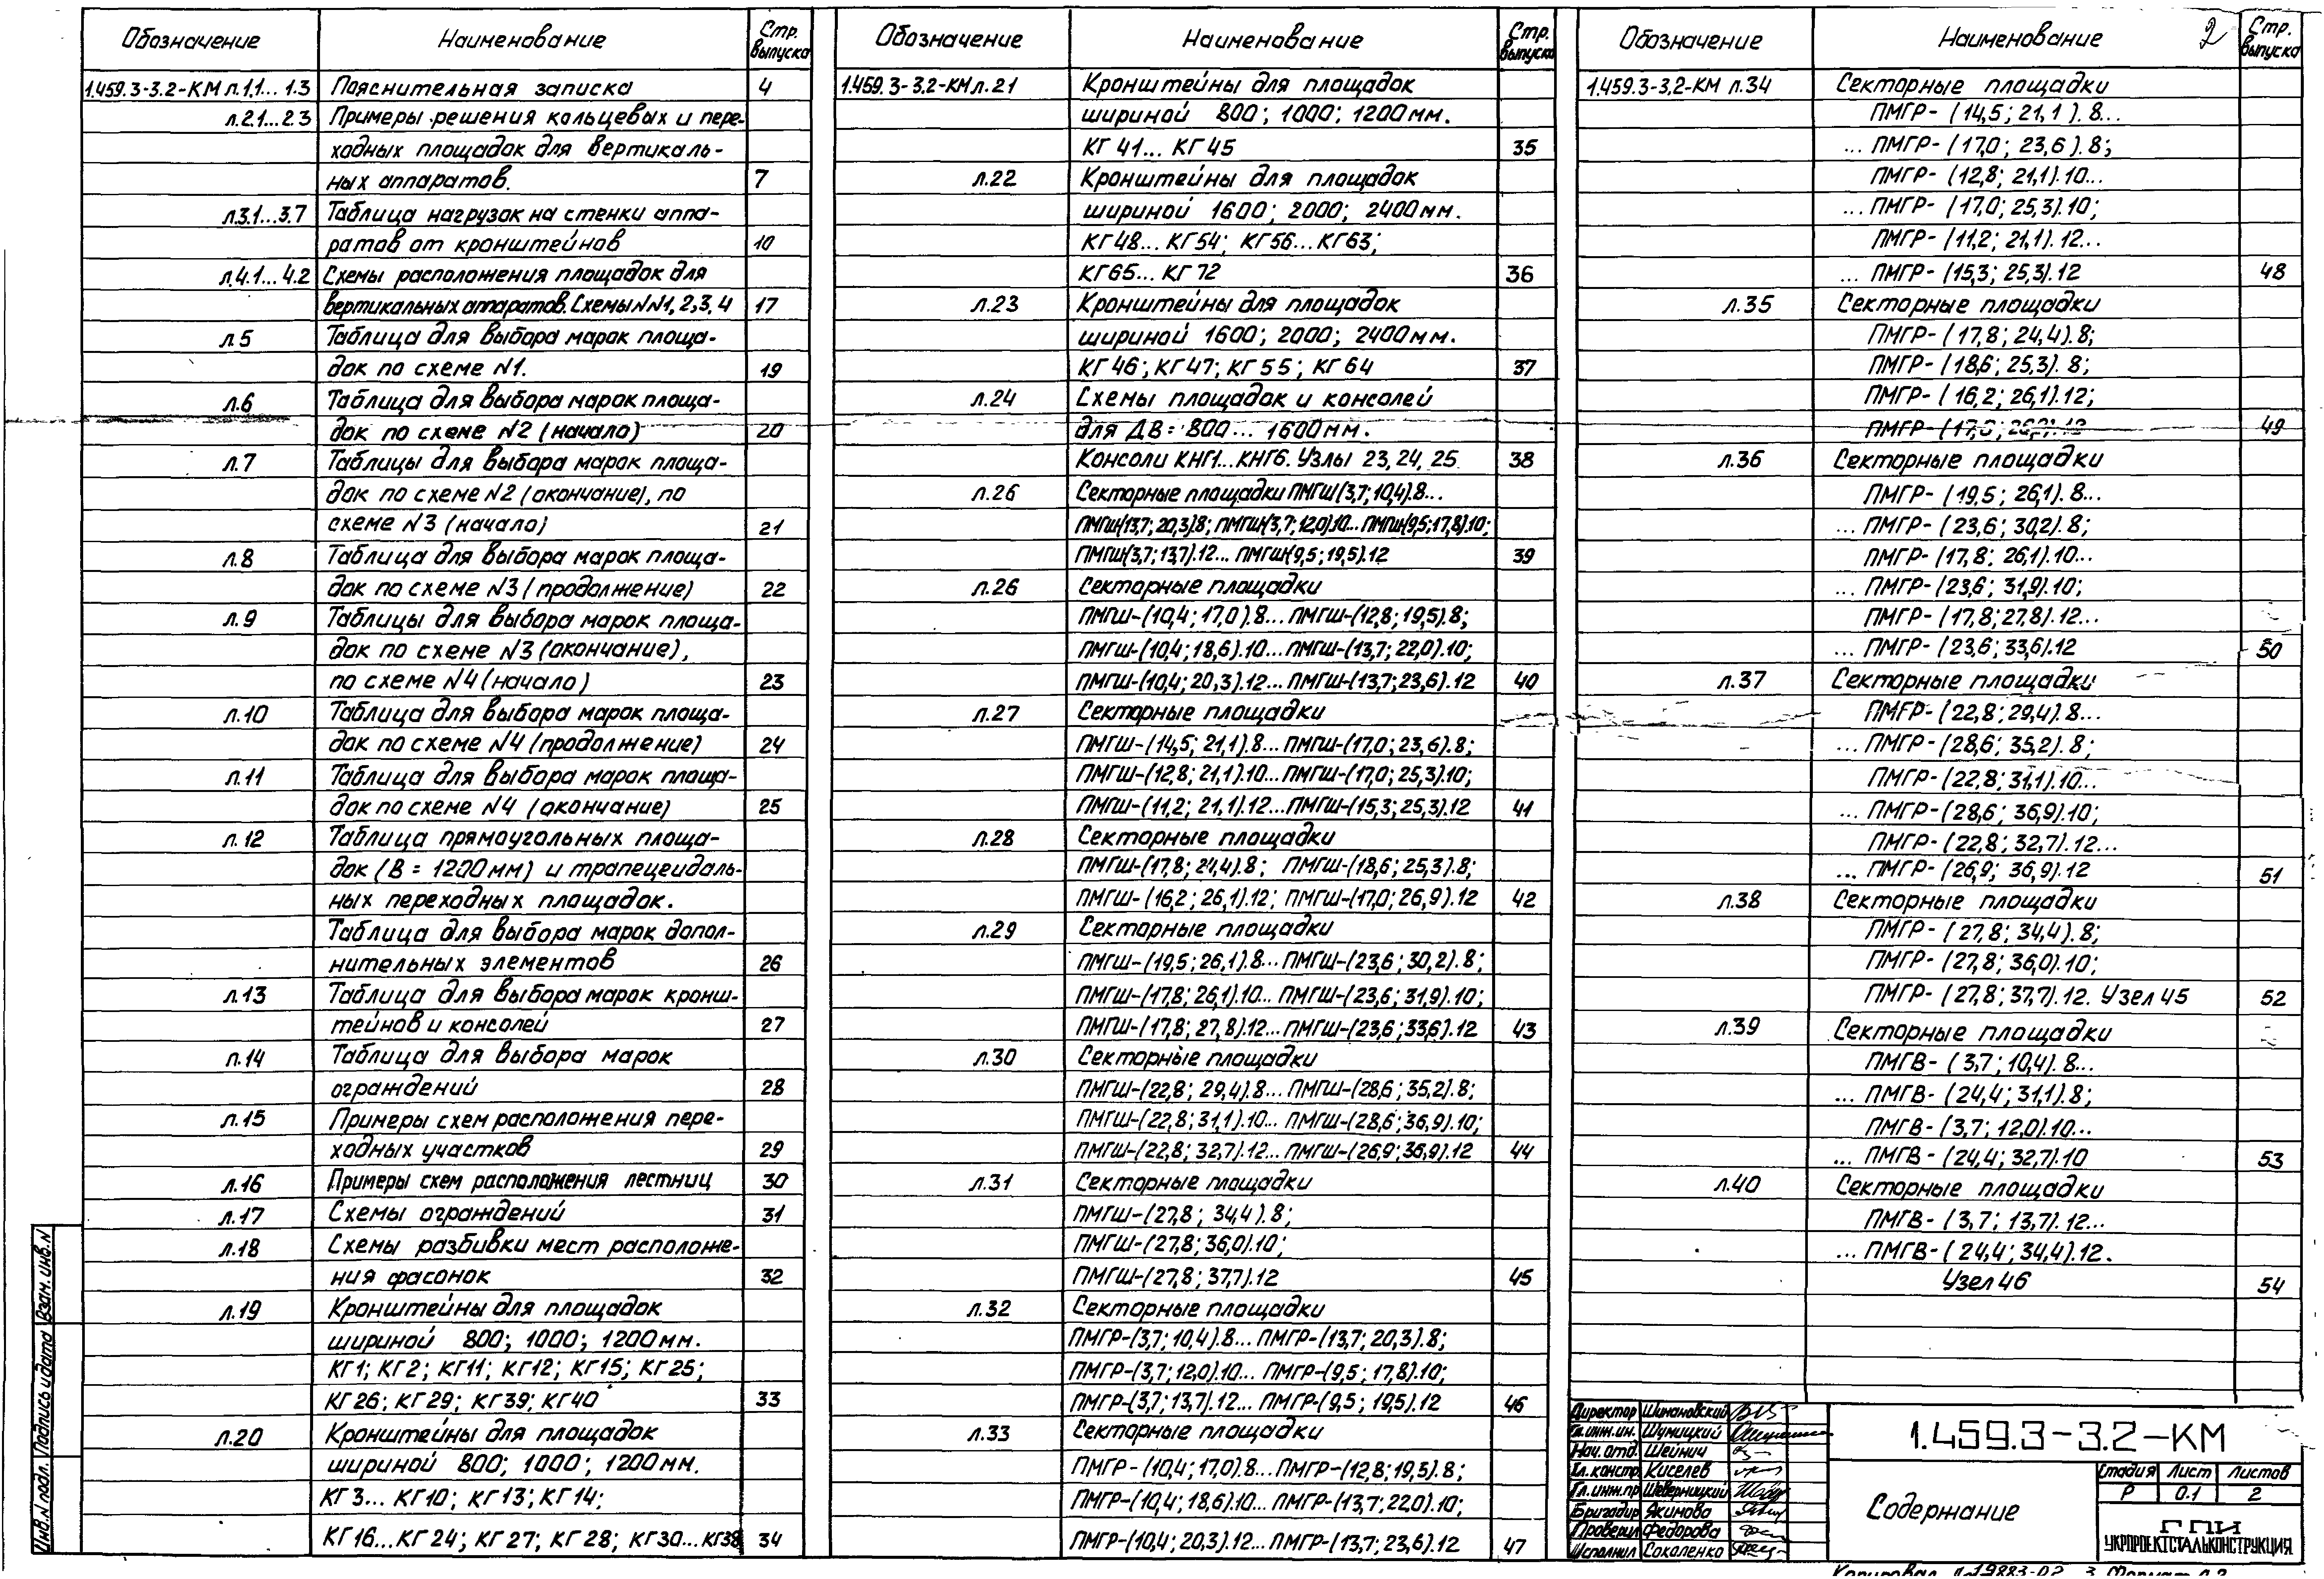 Обозначение Наименование Стр. выпуска
1.459.3-3.2-КМ л.1.1... 1.3 Пояснительная записка 4
л.2.1...2.3 Примеры решения кольцевых и пере-
ходных площадок для вертикаль-
ных аппаратов. 7
л.3.1...3.7 Таблица нагрузок на стенки аппа-
ратов от кронштейнов 10
л.4.1...4.2 Схемы расположения площадок для
вертикальных аппаратов. Схемы NN1,2,3,4 17
л.5 Таблица для выбора марок площа-
док по схеме N1. 19
л.6 Таблица для выбора марок площа-
док по схеме N2 (начало) 20
л.7 Таблицы для выбора марок площа-
док по схеме N2 (окончание), по
схеме N3 (начало) 21
л.8 Таблица для выбора марок площа-
док по схеме N3 (продолжение) 22
л.9 Таблицы для выбора марок площа-
док по схеме N3 (окончание),
по схеме N4 (начало) 23
л.10 Таблица для выбора марок площа-
док по схеме N4 (продолжение) 24
л.11 Таблица для выбора марок площа-
док по схеме N4 (окончание) 25
л.12 Таблица прямоугольных площа-
док (В = 1200мм) и трапецеидаль-
ных переходных площадок.
Таблица для выбора марок допол-
нительных элементов 26
л.13 Таблица для выбора марок кронш-
тейнов и консолей 27
л.14 Таблица для выбора марок
ограждений 28
л.15 Примеры схем расположения пере-
ходных участков 29
л.16 Примеры схем расположения лестниц 30
л.17 Схемы ограждений 31
л.18 Схемы разбивки мест расположе-
ния фасонок 32
л.19 Кронштейны для площадок
шириной 800; 1000; 1200мм.
КГ1; КГ2; КГ11; КГ12; КГ15; КГ25;
КГ26; КГ29; КГ39; КГ40 33
л.20 Кронштейны для площадок
шириной 800; 1000; 1200мм.
КГ3... КГ10; КГ13; КГ14;
КГ16...КГ24; КГ27; КГ28; КГ30...КГ38 34
Обозначение Наименование Стр. выпуска
1.459.3-3.2-КМ л.21 Кронштейны для площадок
шириной 800; 1000; 1200мм.
КГ41... КГ45 35
л.22 Кронштейны для площадок
шириной 1600; 2000; 2400мм.
КГ48...КГ54; КГ56...КГ63;
КГ65...КГ72 36
л.23 Кронштейны для площадок
шириной 1600; 2000; 2400мм.
КГ46; КГ47; КГ55; КГ64 37
л.24 Схемы площадок и консолей
для ДВ= 800... 1600мм.
Консоли КНГ1...КНГ6. Узлы 23,24,25 38
л.26 Секторные площадки ПМГШ(3,7;10,4).8...
ПМГШ(13,7;20,3)8; ПМГШ(3,7;12,0)10...ПМГШ(9,5;17,8).10;
ПМГШ(3,7;13,7).12...ПМГШ(9,5;19,5).12 39
л.26 Секторные площадки
ПМГШ-(10,4;17,0).8...ПМГШ-(12,8;19,5).8;
ПМГШ-(10,4;18,6).10...ПМГШ-(13,7;22,0).10;
ПМГШ-(10,4;20,3).12...ПМГШ-(13,7;23,6).12 40
л.27 Секторные площадки
ПМГШ-(14,5;21,1).8...ПМГШ-(17,0;23,6).8;
ПМГШ-(12,8;21,1).10...ПМГШ-(17,0;25,3).10;
ПМГШ-(11,2;21,1).12...ПМГШ-(15,3;25,3).12 41
л.28 Секторные площадки
ПМГШ-(17,8;24,4).8; ПМГШ-(18,6;25,3).8;
ПМГШ-(16,2;26,1).12; ПМГШ-(17,0;26,9).12 42
л.29 Секторные площадки
ПМГШ-(19,5;26,1).8...ПМГШ-(23,6;30,2).8;
ПМГШ-(17,8;26,1).10...ПМГШ-(23,6;31,9).10;
ПМГШ-(17,8;27,8).12...ПМГШ-(23,6;33,6).12 43
л.30 Секторные площадки
ПМГШ-(22,8;29,4).8...ПМГШ-(28,6;35,2).8;
ПМГШ-(22,8;31,1).10...ПМГШ-(28,6;36,9).10;
ПМГШ-(22,8;32,7).12...ПМГШ-(26,9;36,9).12 44
л.31 Секторные площадки
ПМГШ-(27,8;34,4).8;
ПМГШ-(27,8;36,0).10;
ПМГШ-(27,8;37,7).12 45
л.32 Секторные площадки
ПМГР-(3,7;10,4).8...ПМГР-(13,7;20,3).8;
ПМГР-(3,7;12,0).10...ПМГР-(9,5;17,8).10;
ПМГР-(3,7;13,7).12...ПМГР-(9,5;19,5).12 46
л.33 Секторные площадки
ПМГР-(10,4;17,0).8...ПМГР-(12,8;19,5).8;
ПМГР-(10,4;18,6).10...ПМГР-(13,7;22,0).10;
ПМГР-(10,4;20,3).12...ПМГР-(13,7;23,6).12 47
Обозначение Наименование 2 Стр. выпуска
1.459.3-3.2-КМ л.34 Секторные площадки
ПМГР-(14,5;21,1).8...
...ПМГР-(17,0;23,6).8;
ПМГР-(12,8;21,1).10...
...ПМГР-(17,0;25,3).10;
ПМГР-(11,2;21,1).12...
...ПМГР-(15,3;25,3).12 48
л.35 Секторные площадки
ПМГР-(17,8;24,4).8;
ПМГР-(18,6;25,3).8;
ПМГР-(16,2;26,1).12;
ПМГР-(17,0;26,9).12 49
л.36 Секторные площадки
ПМГР-(19,5;26,1).8...
...ПМГР-(23,6;30,2).8;
ПМГР-(17,8;26,1).10...
...ПМГР-(23,6;31,9).10;
ПМГР-(17,8;27,8).12...
...ПМГР-(23,6;33,6).12 50
л.37 Секторные площадки
ПМГР-(22,8;29,4).8...
...ПМГР-(28,6;35,2).8;
ПМГР-(22,8;31,1).10...
...ПМГР-(28,6;36,9).10;
ПМГР-(22,8;32,7).12...
...ПМГР-(26,9;36,9).12 51
л.38 Секторные площадки
ПМГР-(27,8;34,4).8;
ПМГР-(27,8;36,0).10;
ПМГР-(27,8;37,7).12. Узел 45 52
л.39 Секторные площадки
ПМГВ-(3,7;10,4).8...
...ПМГВ-(24,4;31,1).8;
ПМГВ-(3,7;12,0).10...
...ПМГВ-(24,4;32,7).10 53
л.40 Секторные площадки
ПМГВ-(3,7;13,7).12...
...ПМГВ-(24,4;34,4).12.
Узел 46 54
Директор Шимановский
Гл.инж.ин. Шумицкий
Нач.отд. Шейнич
Гл.констр. Киселев
Гл.инж.пр Шеверницкий
Бригадир Якимова
Проверил Федорова
Исполнил Сокаленко
1.459.3-3.2-КМ
Содержание
Стадия Лист Листов
Р 0.1 2
ГПИ
УКРПРОЕКТСТАЛЬКОНСТРУКЦИЯ
Инв.N подл. Подпись и дата Взам. инв.N
Копировал 19883-02 3 Формат А2